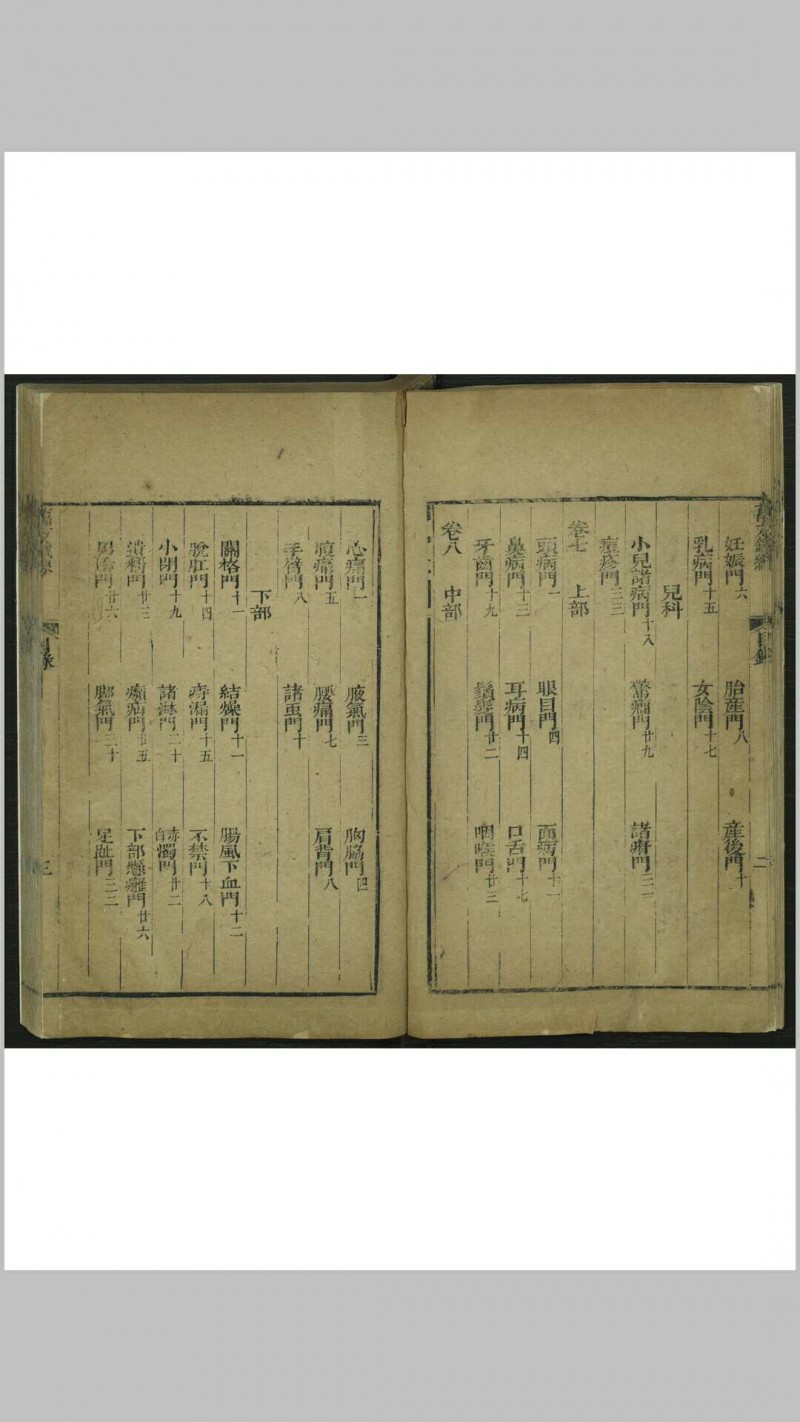 妊娠門六 胎産門八 産後門十
乳病門十五 女陰門十七
兒科
小兒諸病門十八 驚癎門廿九 諸疳門三一
痘疹門三三
卷七 上部
頭病門一 眼目門四 面病門十一
鼻病門十三 耳病門十四 口舌門十七
牙齒門十九 鬚髮門廿二 咽喉門廿三
卷八 中部
心痛門一 腋氣門三 胸脇門四
腹痛門五 腰痛門七 肩背門八
手臂門八 諸蟲門十
下部
關格門十一 結燥門十一 腸風下血門十二
脫肛門十四 痔漏門十五 不禁門十八
小閉門十九 諸淋門二十 赤白濁門廿二
遺精門廿三 癩病門廿五 下部懸癰門廿六
男陰門廿六 脚氣門三十 足趾門三三
目錄
三